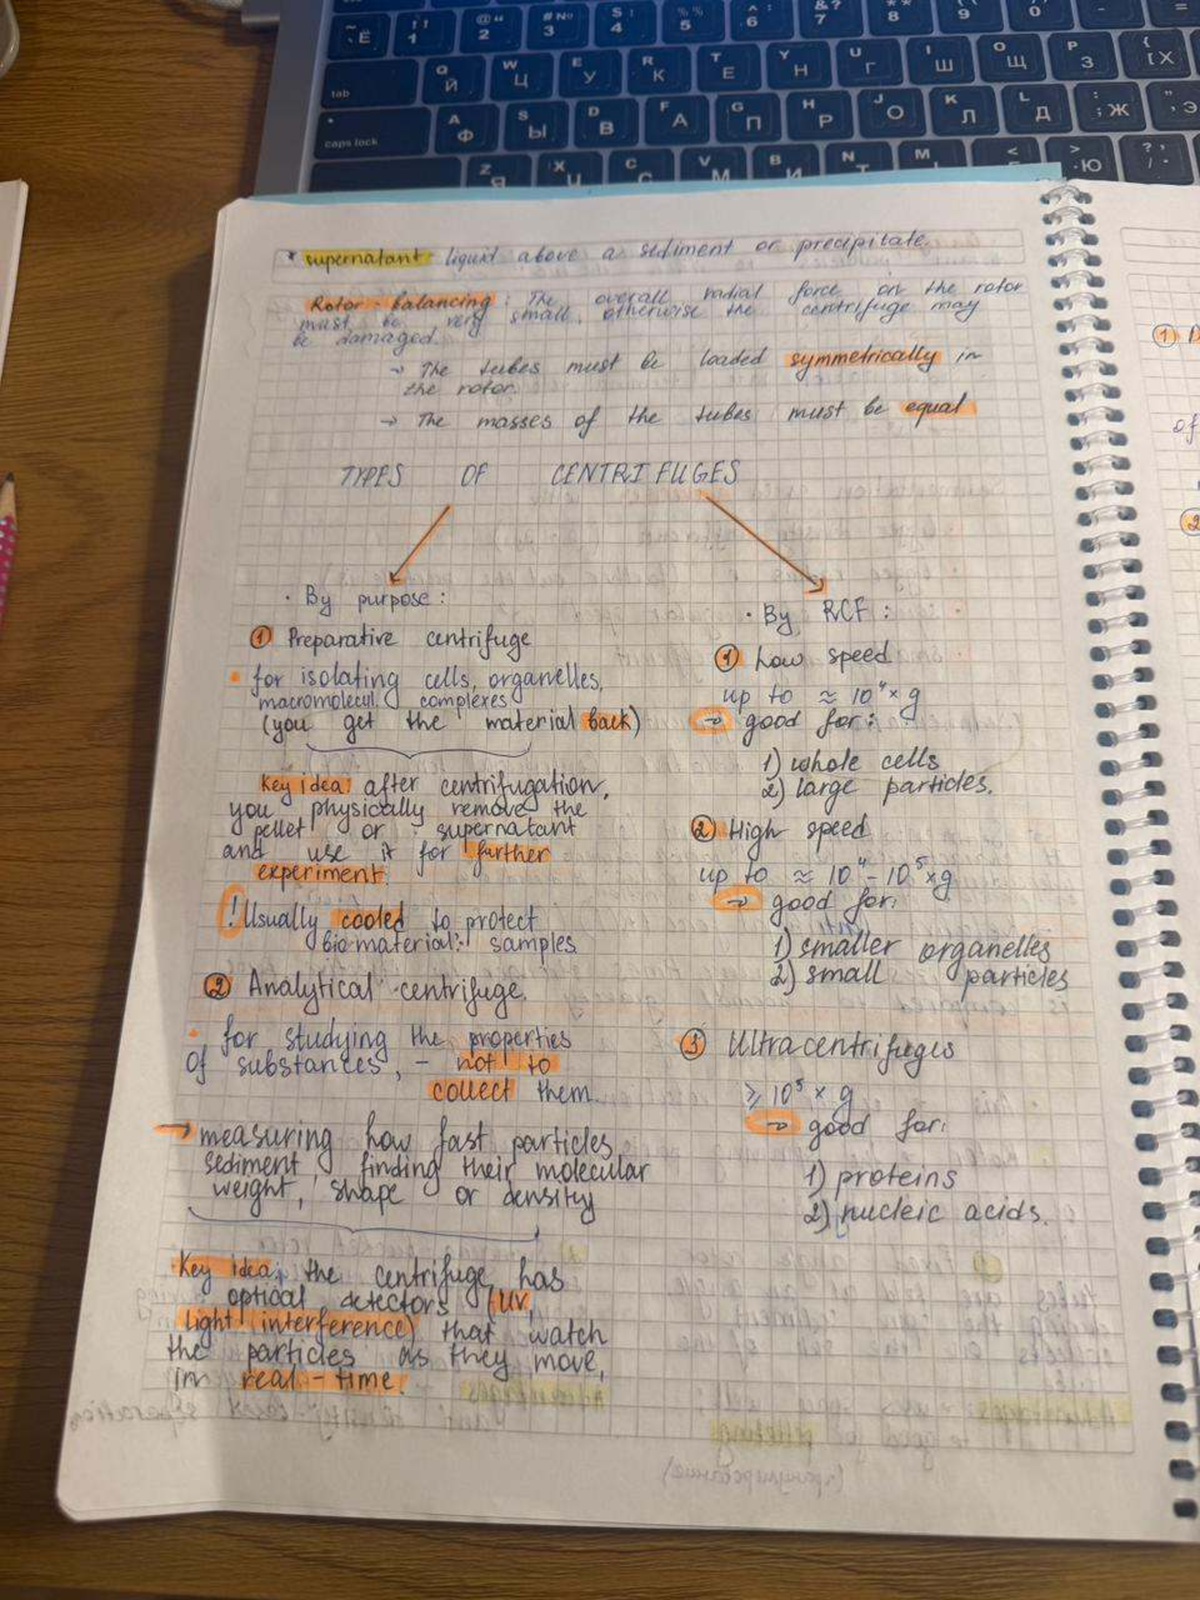 ~ Ё ! 1 @ " 2 # № 3 $ ; 4 % % 5 ^ : 6 & ? 7 * * 8 ( 9 ) 0 - =
tab Q Й W Ц E У R К T Е Y Н U Г I Ш O Щ P З { [ Х
caps lock A Ф S Ы D В F А G П H Р J О K Л L Д : ; Ж " ' Э
Z Я X Ч C С V М B И N Т M Ь < > . Ю ? , / .
* supernatant liquid above a sediment or precipitate.
Rotor-balancing: The overall radial force on the rotor
must be very small, otherwise the centrifuge may
be damaged.
→ The tubes must be loaded symmetrically in
the rotor.
→ The masses of the tubes must be equal
TYPES OF CENTRIFUGES
· By purpose:
① Preparative centrifuge
• for isolating cells, organelles,
macromolecul. complexes
(you get the material back)
Key idea: after centrifugation,
you physically remove the
pellet or supernatant
and use it for further
experiment.
! Usually cooled to protect
bio material: samples
② Analytical centrifuge.
• for studying the properties
of substances, - not to
collect them.
→ measuring how fast particles
sediment, finding their molecular
weight, shape or density
Key idea: the centrifuge has
optical detectors (UV,
light interference) that watch
the particles as they move,
in real-time.
· By RCF:
① Low speed
up to ≈ 10⁴ × g
→ good for:
1) whole cells
2) large particles.
② High speed
up to ≈ 10⁴ - 10⁵ × g
→ good for:
1) smaller organelles
2) small particles
③ Ultracentrifuges
≥ 10⁵ × g
→ good for:
1) proteins
2) nucleic acids.
①
of
②